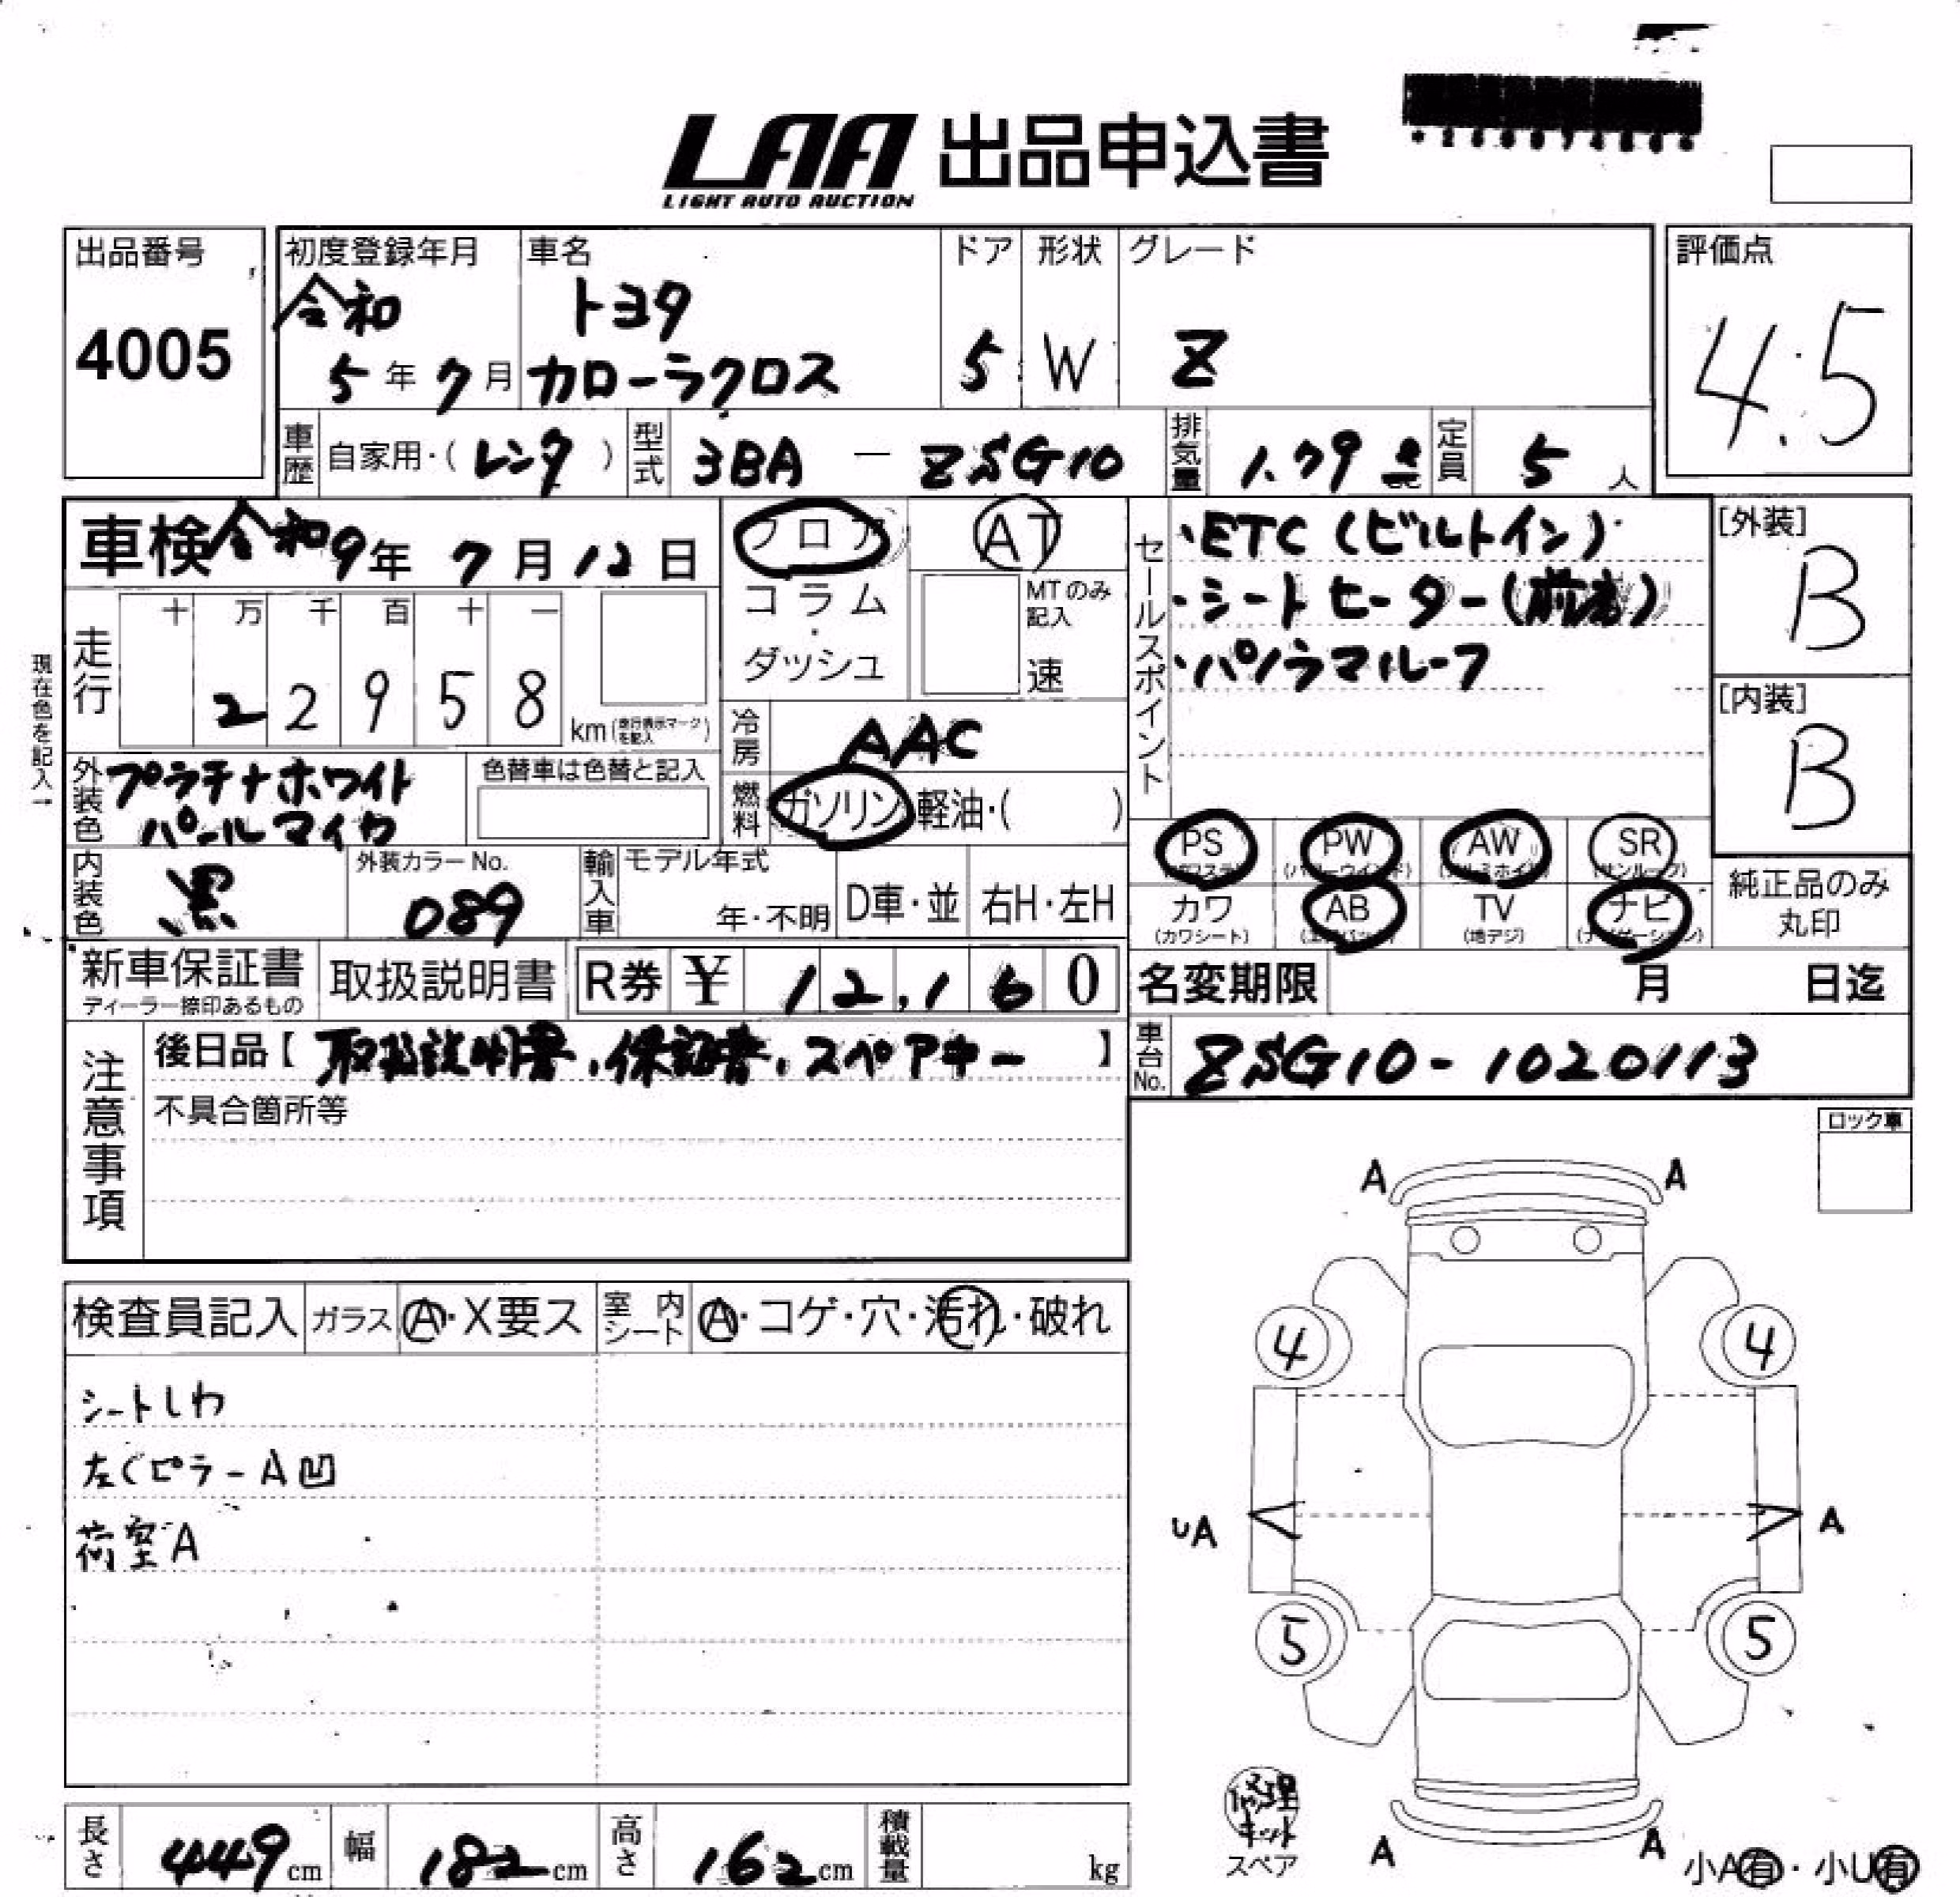 LAA 出品申込書
LIGHT AUTO AUCTION
出品番号
4005
初度登録年月
令和
5年7月
車名
トヨタ
カローラクロス
ドア
5
形状
W
グレード
Z
評価点
4.5
車歴 自家用・(レンタ)
型式 3BA － ZSG10
排気量 1.79
定員 5人
車検 令和9年 7月12日
フロア
コラム・
ダッシュ
AT
MTのみ
記入
速
セールスポイント
・ETC(ビルトイン)
・シートヒーター(前席)
・パノラマルーフ
[外装]
B
[内装]
B
現在色を記入→
走行
十 万 千 百 十 一
2 2 9 5 8
km(走行表示マークを記入)
冷房 AAC
燃料 ガソリン・軽油・( )
外装色 プラチナホワイト
パールマイカ
色替車は色替と記入
内装色 黒
外装カラーNo.
089
輸入車
モデル年式
年・不明
D車・並
右H・左H
PS (パワステ)
PW (パワーウインド)
AW (アルミホイル)
SR (サンルーフ)
カワ (カワシート)
AB (エアバック)
TV (地デジ)
ナビ (ナビゲーション)
純正品のみ
丸印
新車保証書
ディーラー捺印あるもの
取扱説明書
R券 ¥ 12,160
名変期限 月 日迄
車台No. ZSG10-1020113
注意事項
後日品【取扱説明書、保証書、スペアキー】
不具合箇所等
ロック車
検査員記入
ガラス A・X要ス
室内シート A・コゲ・穴・汚れ・破れ
シートしわ
左CピラーA凹
荷室A
A A
4 4
UA A
5 5
修理
キット
スペア
A A
小A有・小U有
長さ 449cm
幅 182cm
高さ 162cm
積載量 kg